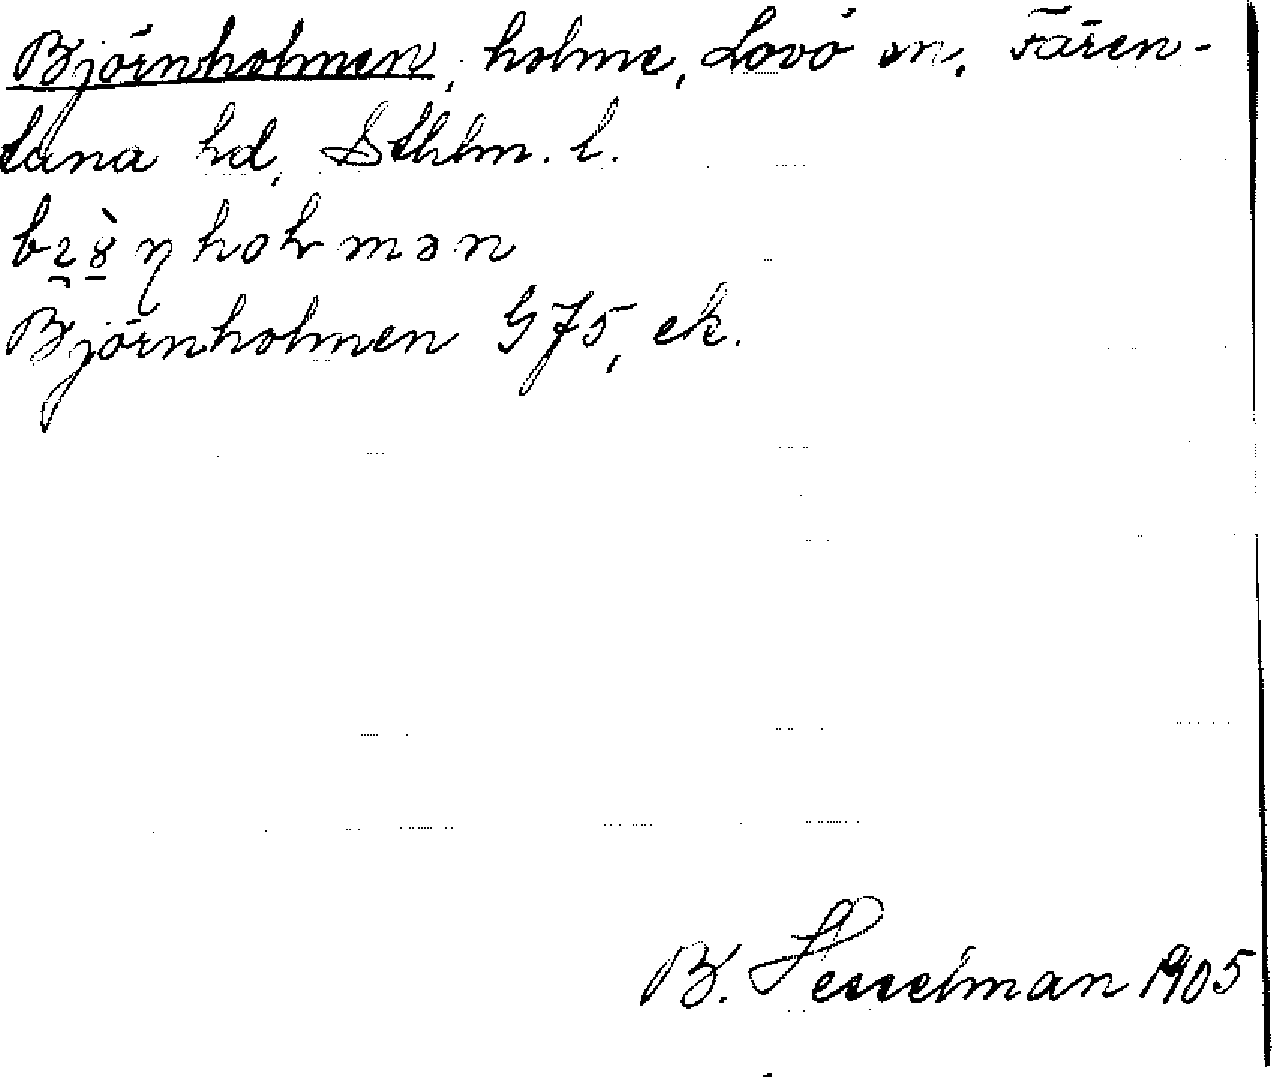 Björnholmen, holme, Lovö sn, Fären-
tuna hd, Sthlm. l.
Björnholmen G 75, ek.
B. Hesselman 1905